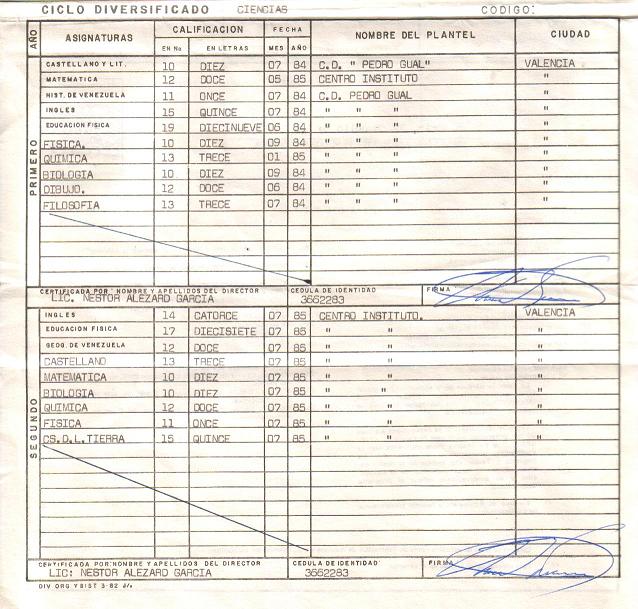 CICLO DIVERSIFICADO CIENCIAS CODIGO:
AÑO ASIGNATURAS CALIFICACION FECHA NOMBRE DEL PLANTEL CIUDAD
EN No EN LETRAS MES AÑO
PRIMERO
CASTELLANO Y LIT. 10 DIEZ 07 84 C.D. " PEDRO GUAL" VALENCIA
MATEMATICA 12 DOCE 05 85 CENTRO INSTITUTO "
HIST. DE VENEZUELA 11 ONCE 07 84 C.D. PEDRO GUAL "
INGLES 15 QUINCE 07 84 " " " "
EDUCACION FISICA 19 DIECINUEVE 06 84 " " " "
FISICA. 10 DIEZ 09 84 " " " "
QUIMICA 13 TRECE 01 85 " " " "
BIOLOGIA 10 DIEZ 09 84 " " " "
DIBUJO. 12 DOCE 06 84 " " " "
FILOSOFIA 13 TRECE 07 84 " " " "
CERTIFICADA POR: NOMBRE Y APELLIDOS DEL DIRECTOR CEDULA DE IDENTIDAD FIRMA
LIC. NESTOR ALEZARD GARCIA 3662283
SEGUNDO
INGLES 14 CATORCE 07 85 CENTRO INSTITUTO. VALENCIA
EDUCACION FISICA 17 DIECISIETE 07 85 " " "
GEOG. DE VENEZUELA 12 DOCE 07 85 " " "
CASTELLANO 13 TRECE 07 85 " " "
MATEMATICA 10 DIEZ 07 85 " " "
BIOLOGIA 10 DIEZ 07 85 " " "
QUIMICA 12 DOCE 07 85 " " "
FISICA 11 ONCE 07 85 " " "
CS.D.L.TIERRA 15 QUINCE 07 85 " " "
CERTIFICADA POR: NOMBRE Y APELLIDOS DEL DIRECTOR CEDULA DE IDENTIDAD FIRMA
LIC: NESTOR ALEZARD GARCIA 3662283
DIV ORG Y BIST 3-82